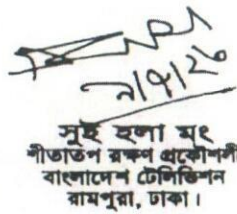 সুই হলা মং
শীতাতপ রক্ষণ প্রকৌশলী
বাংলাদেশ টেলিভিশন
রামপুরা, ঢাকা।